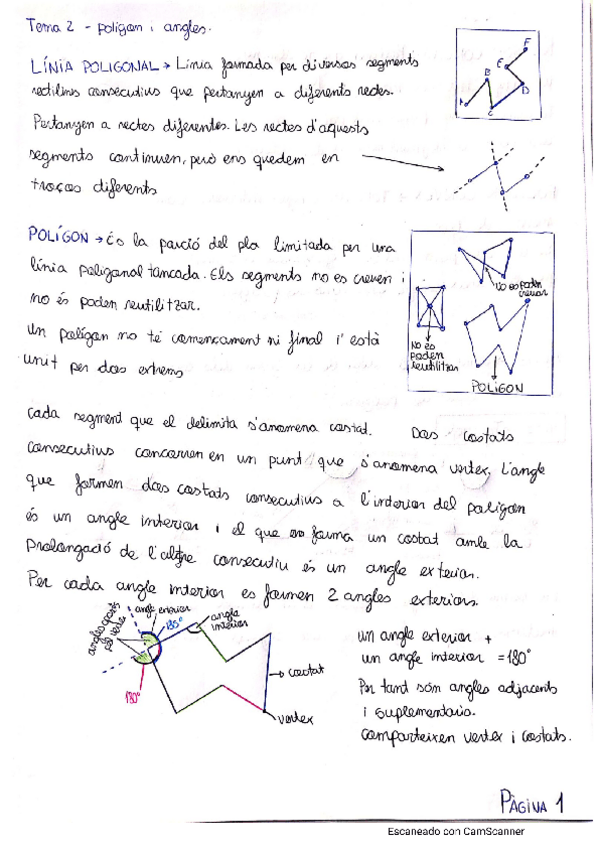 Tema 2 - polígon i angles.
LÍNIA POLIGONAL → Línia formada per diversos segments
rectilinis consecutius que pertanyen a diferents rectes.
Pertanyen a rectes diferents. Les rectes d'aquests
segments continuen, però ens quedem en
troços diferents
A B C D E F
POLÍGON → És la porció del pla limitada per una
línia poligonal tancada. Els segments no es creuen i
no és poden reutilitzar.
Un polígon no té començament ni final i està
unit per dos extrems
No es poden
creuar
No es
poden
reutilitzar
POLÍGON
Cada segment que el delimita s'anomena costat. Dos costats
consecutius concorren en un punt que s'anomena vertex. L'angle
que formen dos costats consecutius a l'interior del polígon
és un angle interior i el que forma un costat amb la
prolongació de l'altre consecutiu és un angle exterior.
Per cada angle interior es formen 2 angles exteriors.
angle exterior
180°
angle
interior
angles oposats
pel vertex
180°
costat
vertex
un angle exterior +
un angle interior = 180°
Per tant són angles adjacents
i suplementaris.
Comparteixen vertex i costats.
PÀGINA 1
Escaneado con CamScanner